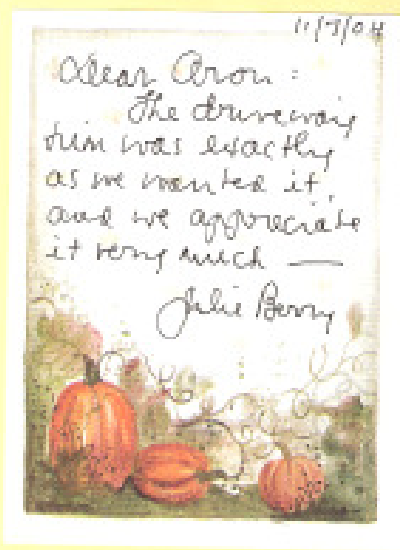 11/9/04
Dear Aron:
The driveway
trim was exactly
as we wanted it,
and we appreciate
it very much —
Julie Berry